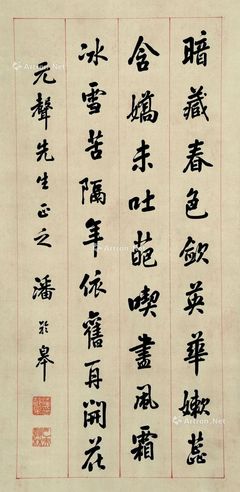 暗藏春色歛英華嫩蕊
含嬌未吐葩喫盡風霜
冰雪苦隔年依舊再開花
元聲先生正之 潘齡皋
Artron.Net